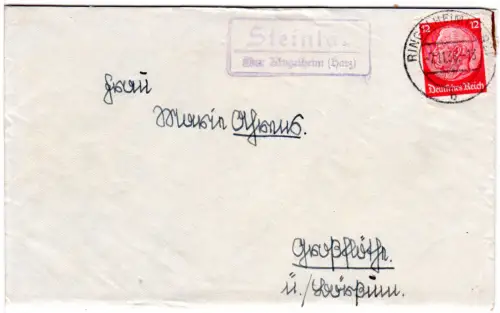 Steinla-
über Ringelheim (Harz)
12 12
Deutsches Reich
RINGELHEIM
Frau
Marie Ahrens.
Großflöthe.
ü./Börßum.